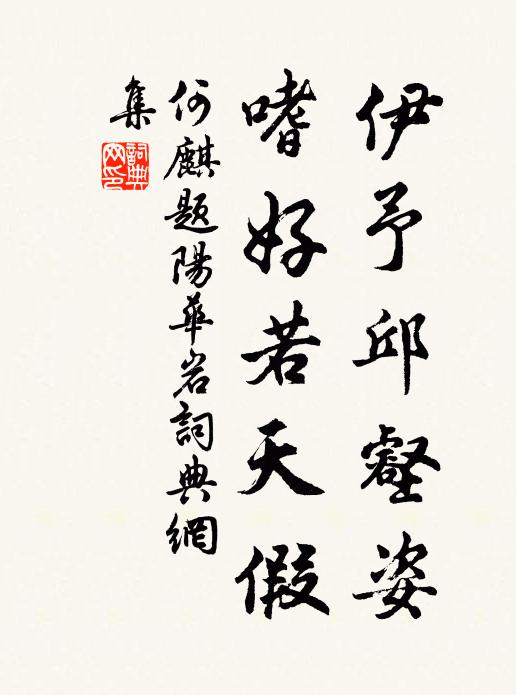 伊予邱壑姿
嗜好若天假
何麒題陽華岩詞典網
集
詞典網印